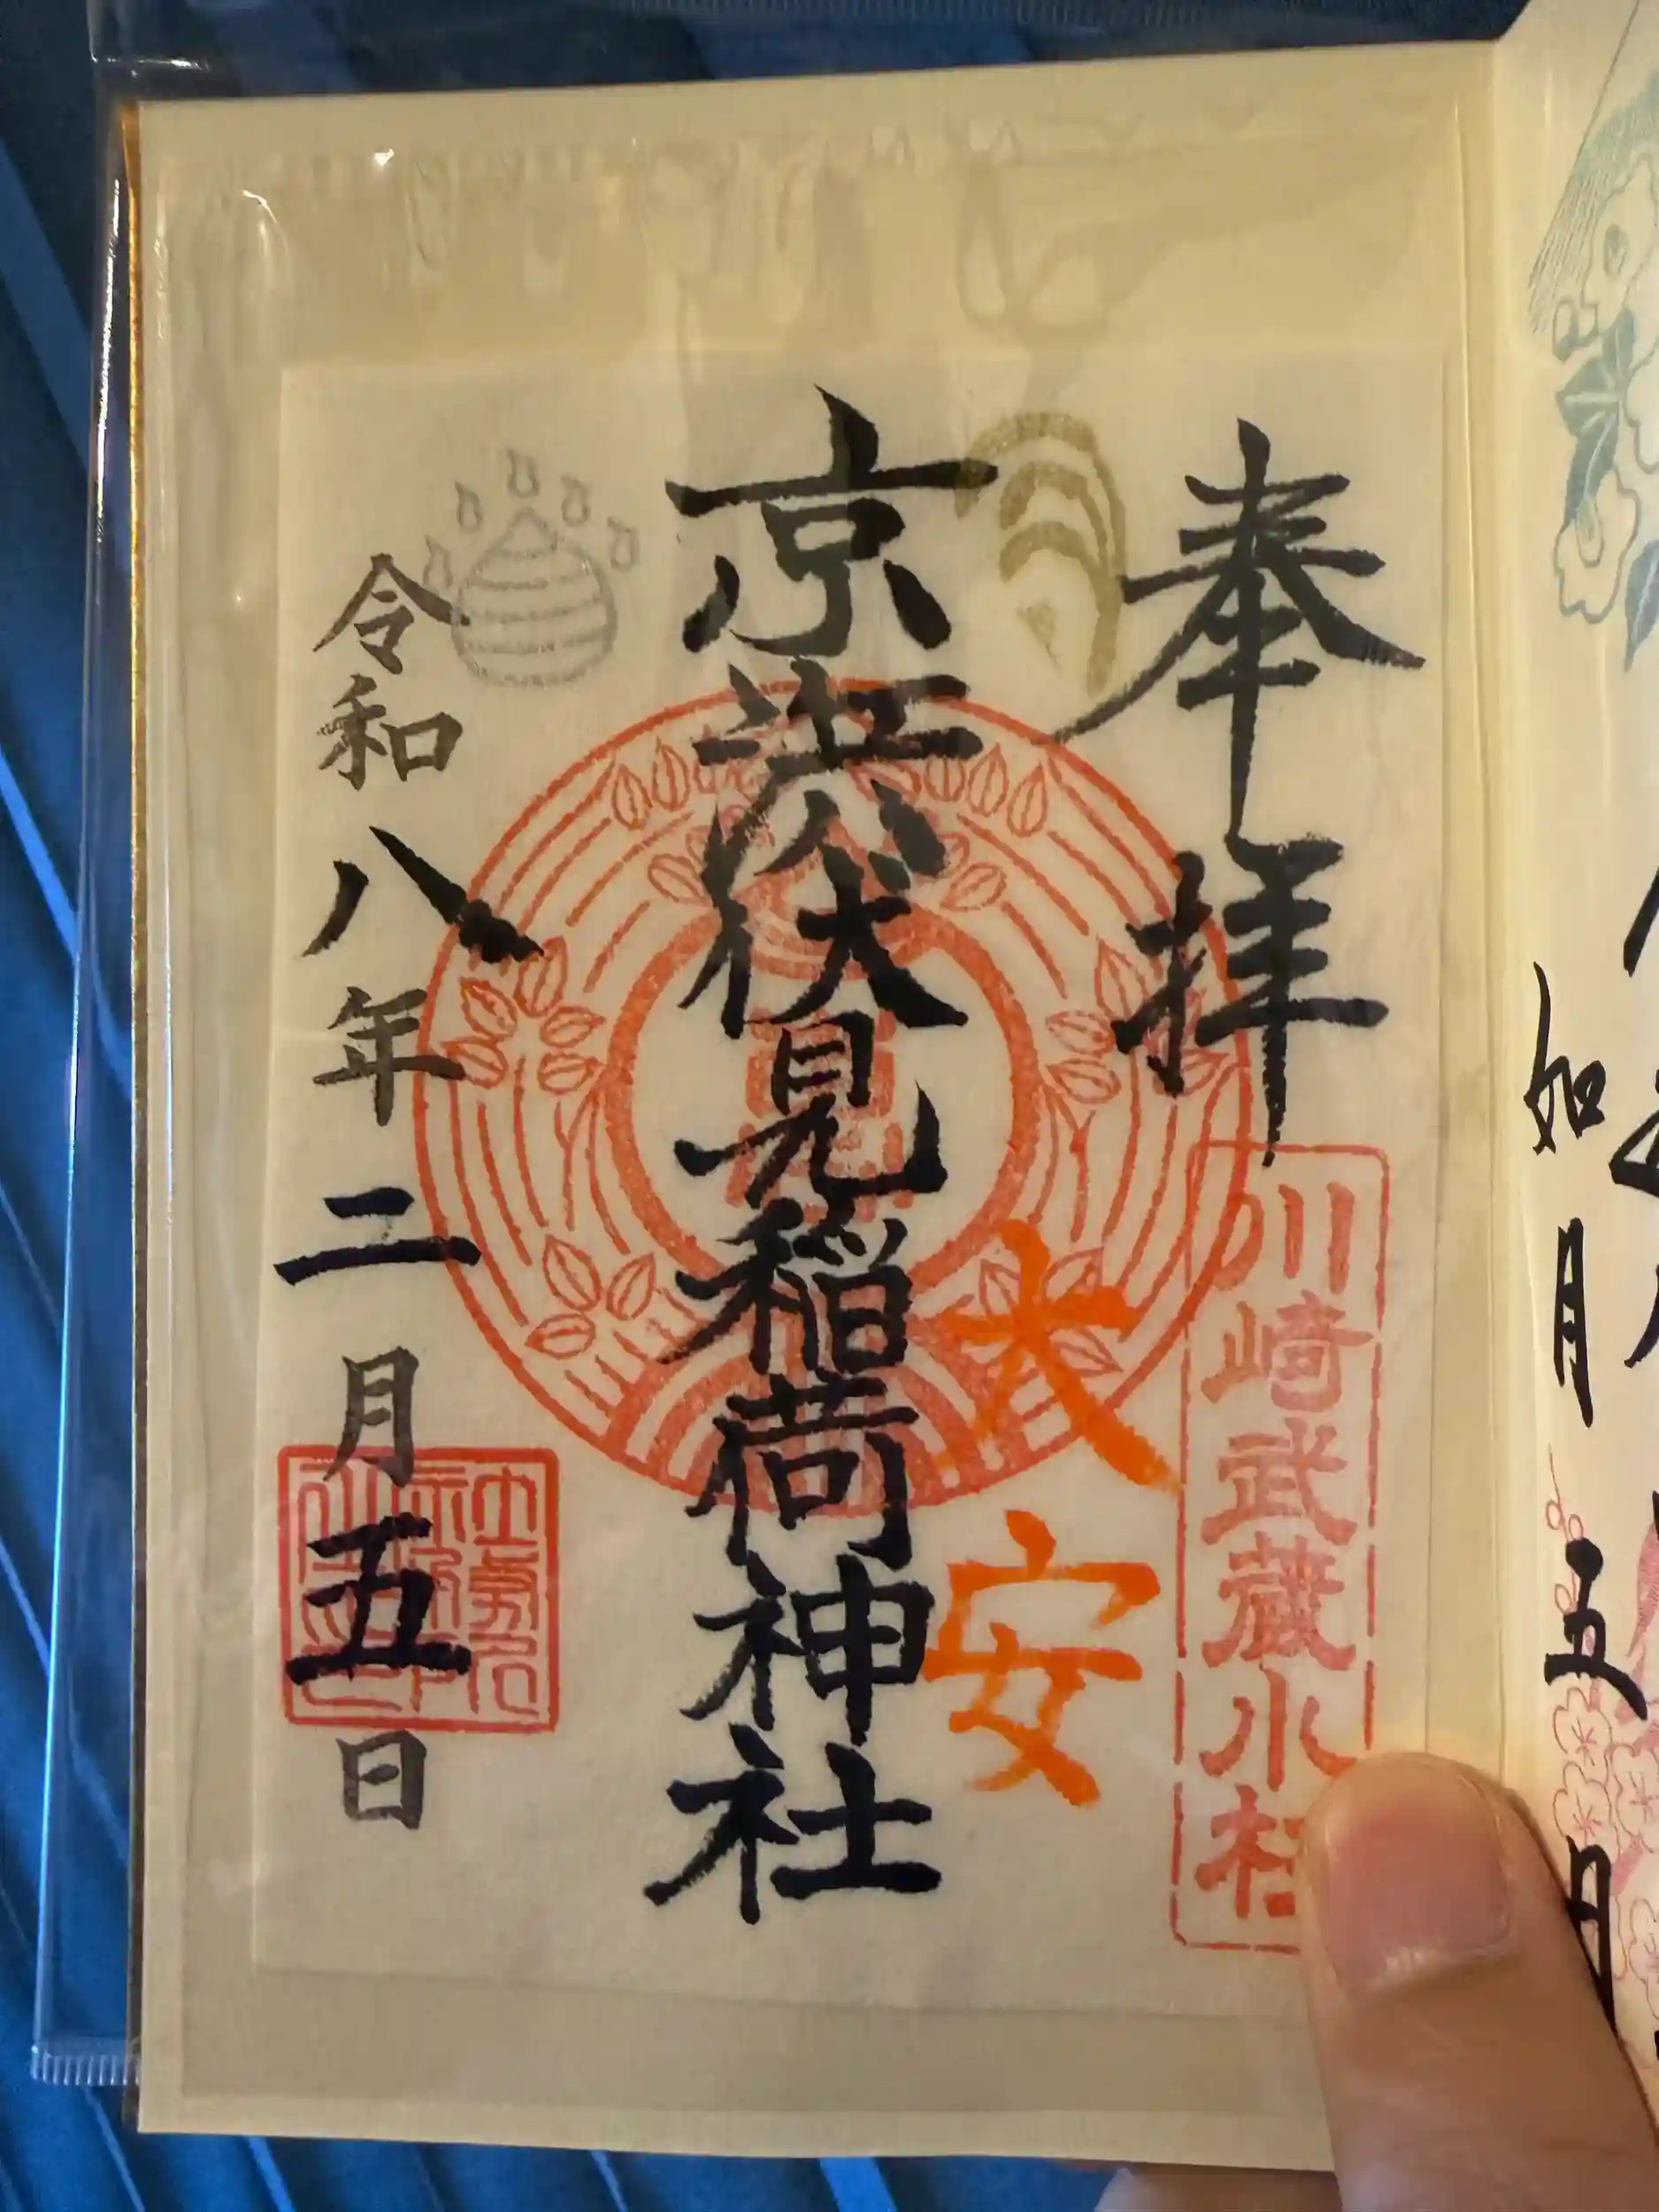 奉拝
川崎武蔵小杉
大安
京濱伏見稲荷神社
令和八年二月五日
如月
五